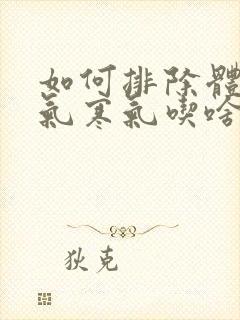 如何排除體
氣寒氣喫啥
狄克